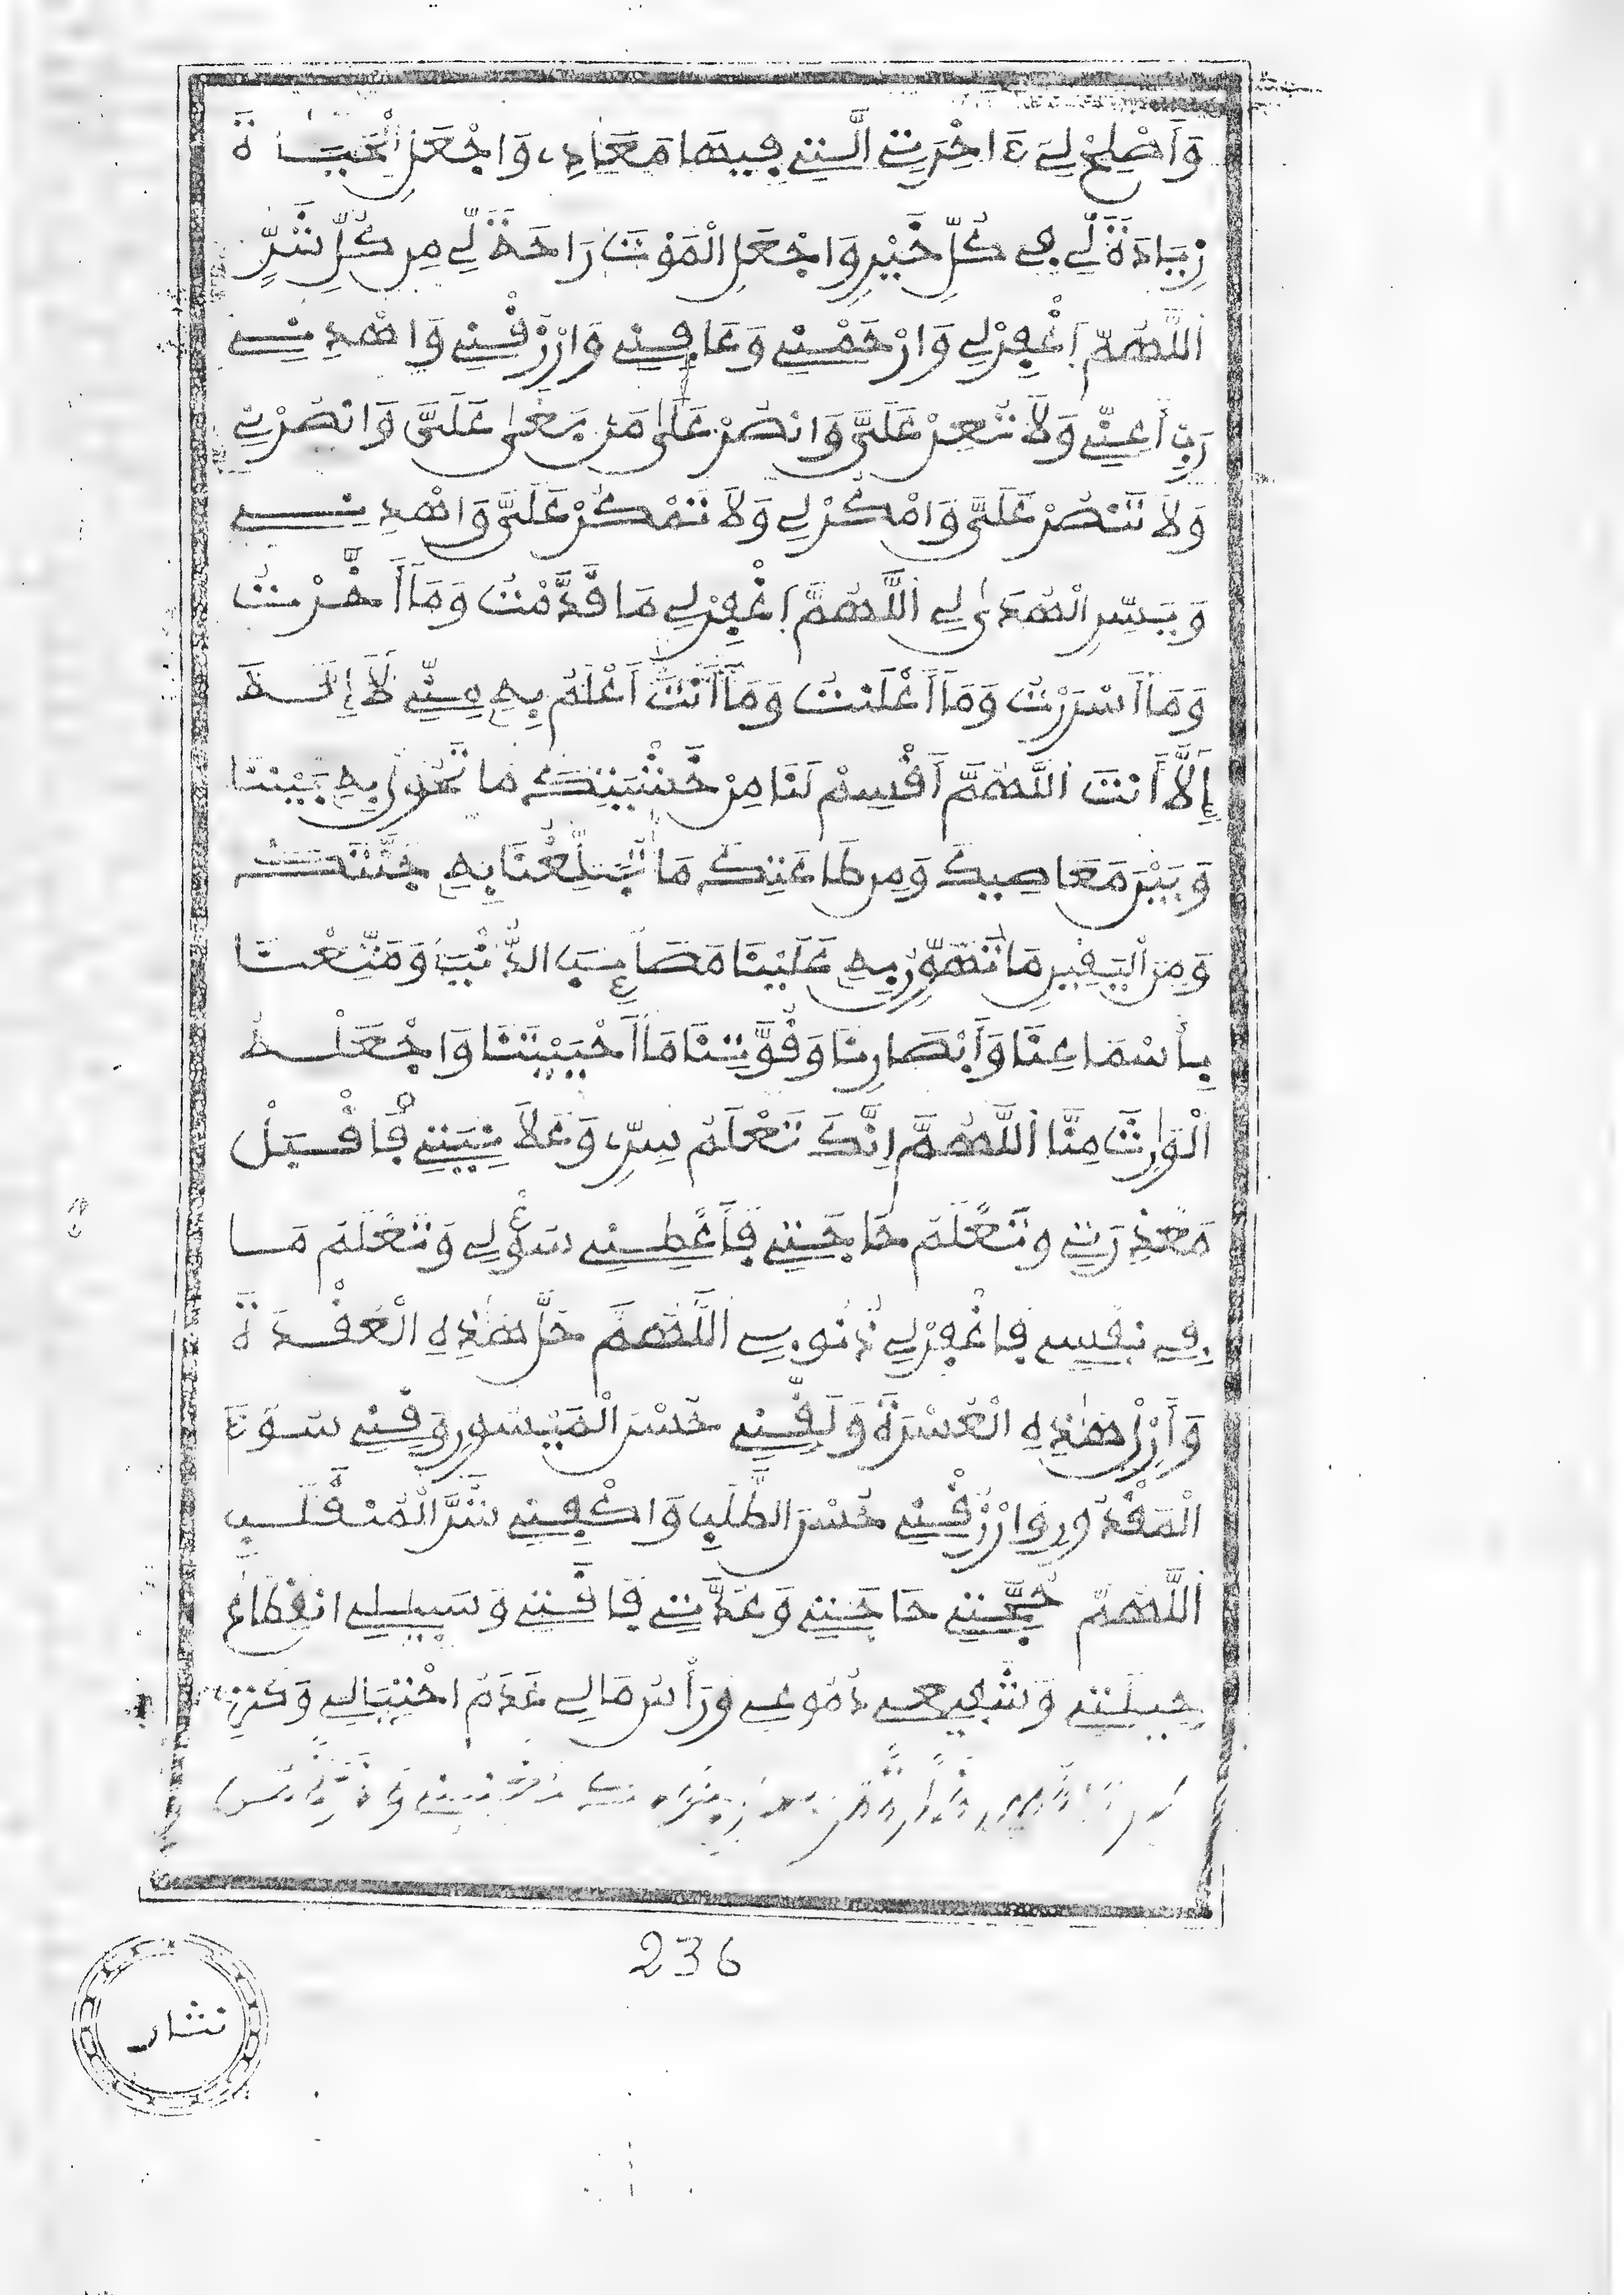 وَأَصْلِحْ لِے ءَاخِرَتِے الَّتِے فِيهَا مَعَادِے وَاجْعَلِ الْحَيَاةَ
زِيَادَةً لِّے فِے كُلِّ خَيْرٍ وَاجْعَلِ الْمَوْتَ رَاحَةً لِّے مِن كُلِّ شَرٍّ
اللَّهُمَّ اغْفِرْ لِے وَارْحَمْنِے وَعَافِنِے وَارْزُقْنِے وَاهْدِنِے
رَبِّ أَعِنِّے وَلاَ تُعِنْ عَلَىَّ وَانصُرْنِے عَلَىٰ مَن بَغَىٰ عَلَىَّ وَانصُرْنِے
وَلاَ تَنصُرْ عَلَىَّ وَامْكُرْ لِے وَلاَ تَمْكُرْ عَلَىَّ وَاهْدِنِے
وَيَسِّرِ الْهُدَىٰ لِے اللَّهُمَّ اغْفِرْ لِے مَا قَدَّمْتُ وَمَا أَخَّرْتُ
وَمَا أَسْرَرْتُ وَمَا أَعْلَنتُ وَمَا أَنتَ أَعْلَمُ بِهِ مِنِّے لاَ إِلَٰهَ
إِلاَّ أَنتَ اللَّهُمَّ أَقْسِمْ لَنَا مِنْ خَشْيَتِكَ مَا تَحُولُ بِهِ بَيْنَنَا
وَبَيْنَ مَعَاصِيكَ وَمِن طَاعَتِكَ مَا تُبَلِّغُنَا بِهِ جَنَّتَكَ
وَمِنَ الْيَقِينِ مَا تُهَوِّنُ بِهِ عَلَيْنَا مَصَائِبَ الدُّنْيَا وَمَتِّعْنَا
بِأَسْمَاعِنَا وَأَبْصَارِنَا وَقُوَّتِنَا مَا أَحْيَيْتَنَا وَاجْعَلْهُ
الْوَارِثَ مِنَّا اللَّهُمَّ إِنَّكَ تَعْلَمُ سِرِّے وَعَلاَنِيَتِے فَاقْبَلْ
مَعْذِرَتِے وَتَعْلَمُ حَاجَتِے فَأَعْطِنِے سُؤْلِے وَتَعْلَمُ مَا
فِے نَفْسِے فَاغْفِرْ لِے ذُنُوبِے اللَّهُمَّ حُلَّ هَٰذِهِ الْعُقْدَةَ
وَأَزِلْ هَٰذِهِ الْعُسْرَةَ وَلَقِّنِے حُسْنَ الْمَيْسُورِ وَقِنِے سُوءَ
الْمَقْدُورِ وَارْزُقْنِے حُسْنَ الطَّلَبِ وَاكْفِنِے شَرَّ الْمُنقَلَبِ
اللَّهُمَّ حُجَّتِے حَاجَتِے وَعُدَّتِے فَاقَتِے وَسِيلِے انقِطَاعُ
حِيلَتِے وَشَفِيعِے دُمُوعِے وَرَأْسُ مَالِے عَدَمُ احْتِيَالِے وَكَنزِے
236
نشار